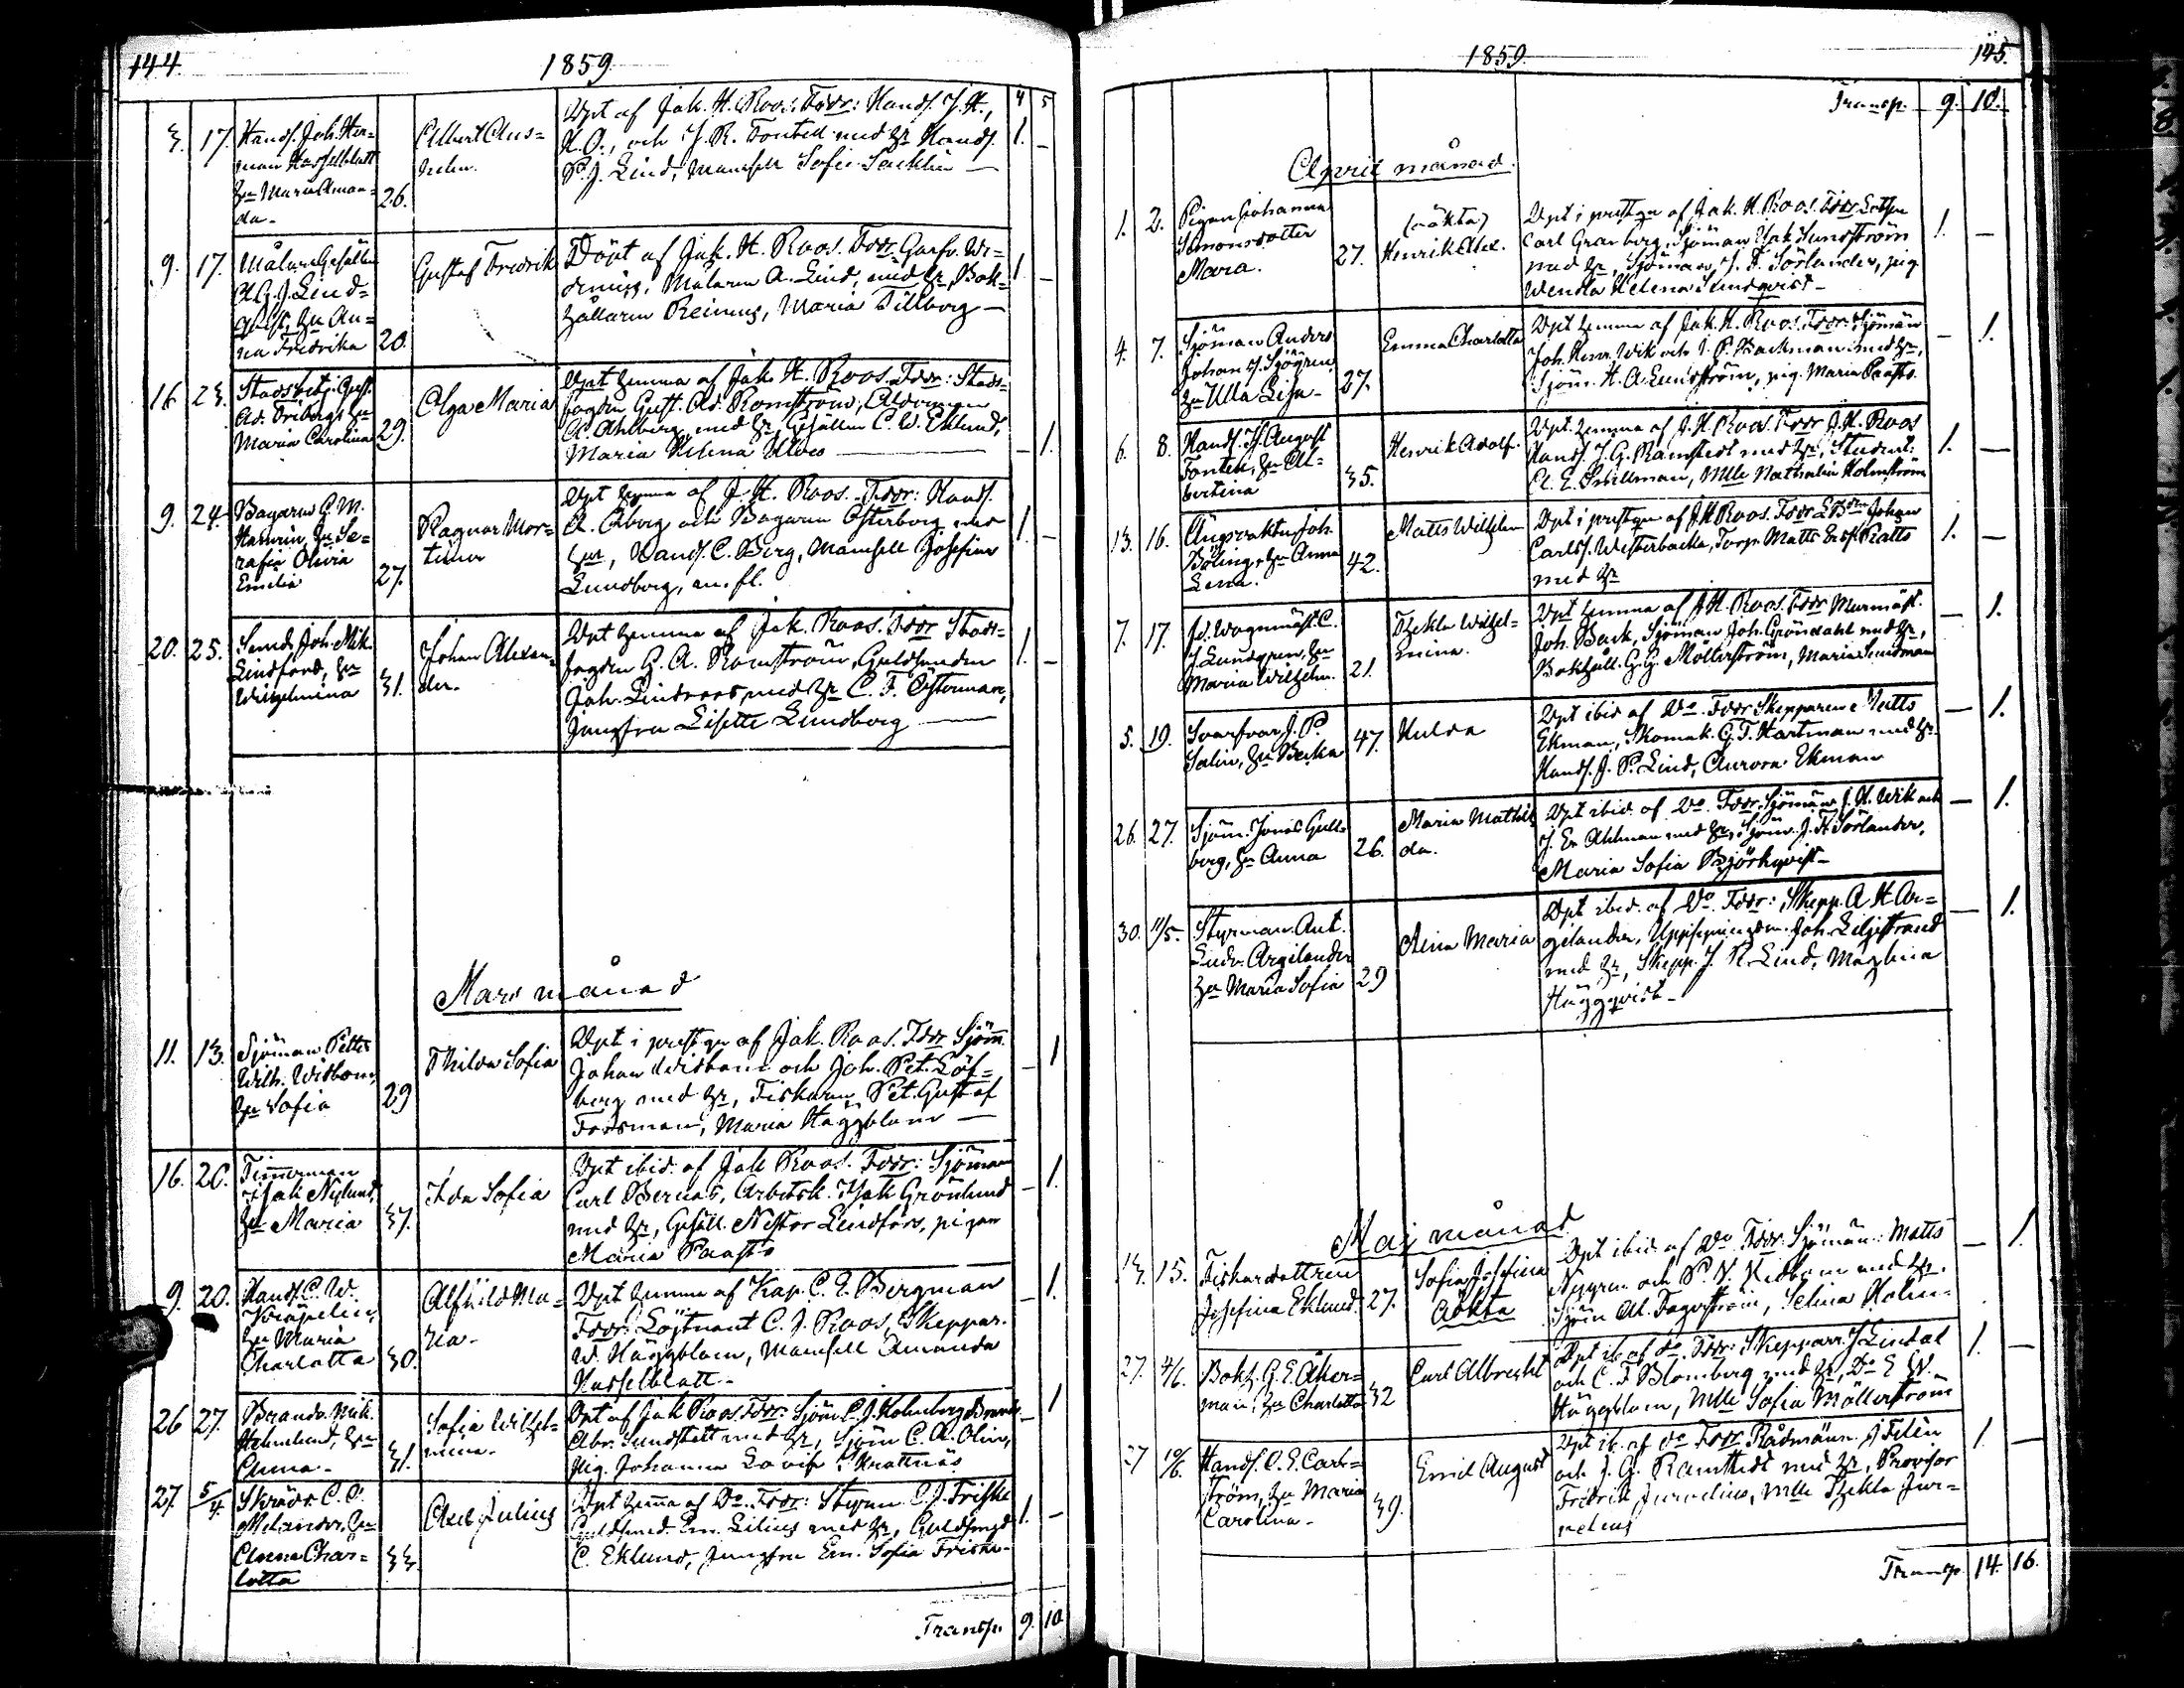 144.
1859.
4 5
3. 17. Handl. Joh. Her=
man Hasselblatt
hu Maria Aman=
da. 26.
Albert Aus=
helm.
Döpt af Jak. H. Roos. Fddr: Handl. J. H.,
K. O., och J. R. Fontell med hr Handl.
P. J. Lind, Mamsell Sofie 1. –
9. 17. Målare Gesällen
A. G. J. Lind=
qvist, hu An=
na Fredrika 20.
Gustaf Fredrik
Döpt af Jak. H. Roos. Fddr Garfv. Wi=
Målaren A. Lind, med hr, Bok=
hållaren Reinius, Maria Tillberg – 1. –
16. 23. Stadsbetj. Gust.
Ad. Friberg, hu
Maria Carolina 29.
Olga Maria
Döpt hemma af Jak. H. Roos. Fddr: Stads=
fogden Gust. Ad. Romström, Åldermann
A. Ahlberg med hr, Gesällen C. W. Eklund,
Maria Helena – 1.
9. 24. Bagaren G. M.
hu Se=
rafia Olivia
Emelia 27.
Ragnar Mor=
timer
Döpt hemma af J. H. Roos. Fddr: Handl.
A. Åberg och Bagaren Österberg med
hr, Handl. C. Berg, Mamsell Josefina
Lundberg, m. fl. 1. –
20. 25. Smeds Joh. Mik.
Lindfors, hu
Wilhelmina 31.
Johan Alexan=
der.
Döpt hemma af Jak. Roos. Fddr Stads=
fogden G. A. Romström, Guldsmeden
Joh. Lindroos med hr C. F. Österman,
Jungfru Lisette Lundberg 1. –
Mars månad
11. 13. Sjöman Petter
Wilh. Widbom,
hu Sofia 29
Thilda Sofia
Döpt i prestgn af Jak. Roos. Fddr Sjöm
Johan Widbom och Joh. Pet. Löf=
berg med hr, Fiskaren Pet. Gustaf
Forsman, Maria Häggblom – – 1
16. 20. Timmerman
Isak Nylund,
hu Maria 37.
Ida Sofia
Döpt ibid. af Jak Roos. Fddr: Sjöman
Carl Bernas, Arbetsk. Isak Grönlund
med hr, Gesäll. Nestor Lindfors, pigan
Maria Paasto – 1.
9. 20. Handl. C. W.
hu Maria
Charlotta 30.
Alfhild Ma=
ria.
Döpt hemma af Kap. C. E. Bergman
Fddr: Löjtnant C. J. Roos, Skeppar.
W. Häggblom, Mamsell Amanda
Hasselblatt. – 1.
26 27. Brandv. Mik.
Holmlund, hu
Anna. 31.
Sofia Wilhel=
mina.
Döpt af Jak Roos. Fddr: Sjöm C. J. Holmberg Brandv
Abr. Sundstedt med hr, Sjöm C. A. Olin,
Pig. Johanna Lovisa – 1
27. 5/4. Skräddr. C. O.
Melander, hu
Anna Char=
lotta 33.
Axel Julius
Döpt hemma af Do. Fddr: Styrm. C. J. Friske
Guldsmed. Em. Lilius med hr, Guldsmed
C. Eklund, Jungfru Em. Sofia Friske. 1. –
Transp. 9. 10
1859.
145.
Transp. 9. 10.
April månad.
1. 2. Pigan Johanna
Simonsdotter
Mara. 27.
(oäkta)
Henrik Alex.
Döpt i prestgn af Jak. H. Roos. Fddr Lotsen
Carl Granberg, Sjöman Isak Sundström
med hr, Sjöman J. F. Sörlander, pig
Wendla Helena Lindqvist – 1. –
4. 7. Sjöman Anders
Johan Sjögren
hu Ulla Lisa – 27.
Emma Charlotta
Döpt hemma af Jak. H. Roos. Fddr: Sjömän
Joh. Henr. Wik och J. P. Backman med hr,
Sjöm. H. A. Lundström, pig. Maria Paasto. – 1.
6. 8. Handl. J. August
Fontell, hu Al=
bertina 35.
Henrik Adolf.
Döpt. hemma af J. H. Roos. Fddr J. H. Roos
Handl. J. G. Ramstedt med hr, Student:
C. E. Snellman, Mlle Nathalia Holmström 1. –
13. 16. Joh.
Böling, hu Anna
Lena. 42.
Matts Wilhelm
Döpt i prestgn af J H Roos. Fddr Johan
Carls. Westerbacka, Torp. Matts Ersf. Pratts
med hr 1. –
7. 17. Wagnmäst. C.
J. Lundgren, hu
Maria Wilhelm. 21.
Thekla Wilhel=
mina.
Döpt hemma af J H. Roos. Fddr Murmäst.
Joh. Back, Sjöman Joh. Gröndahl med hr,
Bokhåll. G. G. Möllerström, Maria Sundman – 1.
5. 19. Svarfvar J. P.
Salin, hu Beska 47.
Hulda
Döpt ibid af Do. Fddr Skepparene Matts
Ekman, Skomak. G. F. Hartman med hr
Handl. J. P. Lind, Aurora Ekman – 1.
26. 27. Sjöm. Jonas Gull=
berg, hu Anna 26.
Maria Mathil=
da.
Döpt ibid. af Do. Fddr. Sjömän J. H. Wik och
J. Er. Ahlman med hr, Sjöm. J. F. Sörlander,
Maria Sofia Björkqvist – – 1.
30. 11/5. Styrman. Ant.
Ludv. Argilander
hu Maria Sofia 29
Aina Maria
Döpt ibid. af Do. Fddr: Skepp. A. H. Ar=
gelander, Uppsyningsm. Joh. Liljestrand
med hr, Skepp. J. R. Lind, Maglena
Häggqvist – – 1.
Maj månad
13. 15. Fiskardottren
Josefina Eklund. 27.
Sofia Josefina
oäkta
Döpt ibid. af Do Fddr. Sjömän: Matts
Nygren och P. N. Widbom med hr.
Sjöm Al. Fagerström, Selina Holm – 1.
27. 4/6. Bokh. G. E. Åker=
man, hu Charlotta 32
Carl Albrecht
Döpt ib. af do. Fddr: Skepparr. J. Lindal
och C. F Blomberg med hr, Do E W.
Häggblom, Mlle Sofia Möllerström 1. –
27 10/6. Handl. C. E. Carl=
ström, hu Maria
Carolina – 39.
Emil August
Döpt ib. af do Fddr Rådmänn. J Felén
och J. G. Ramstedt med hr, Provisor
Fredrik Jurvelius, Mlle Thekla Jur=
velius 1. –
Transp. 14. 16.